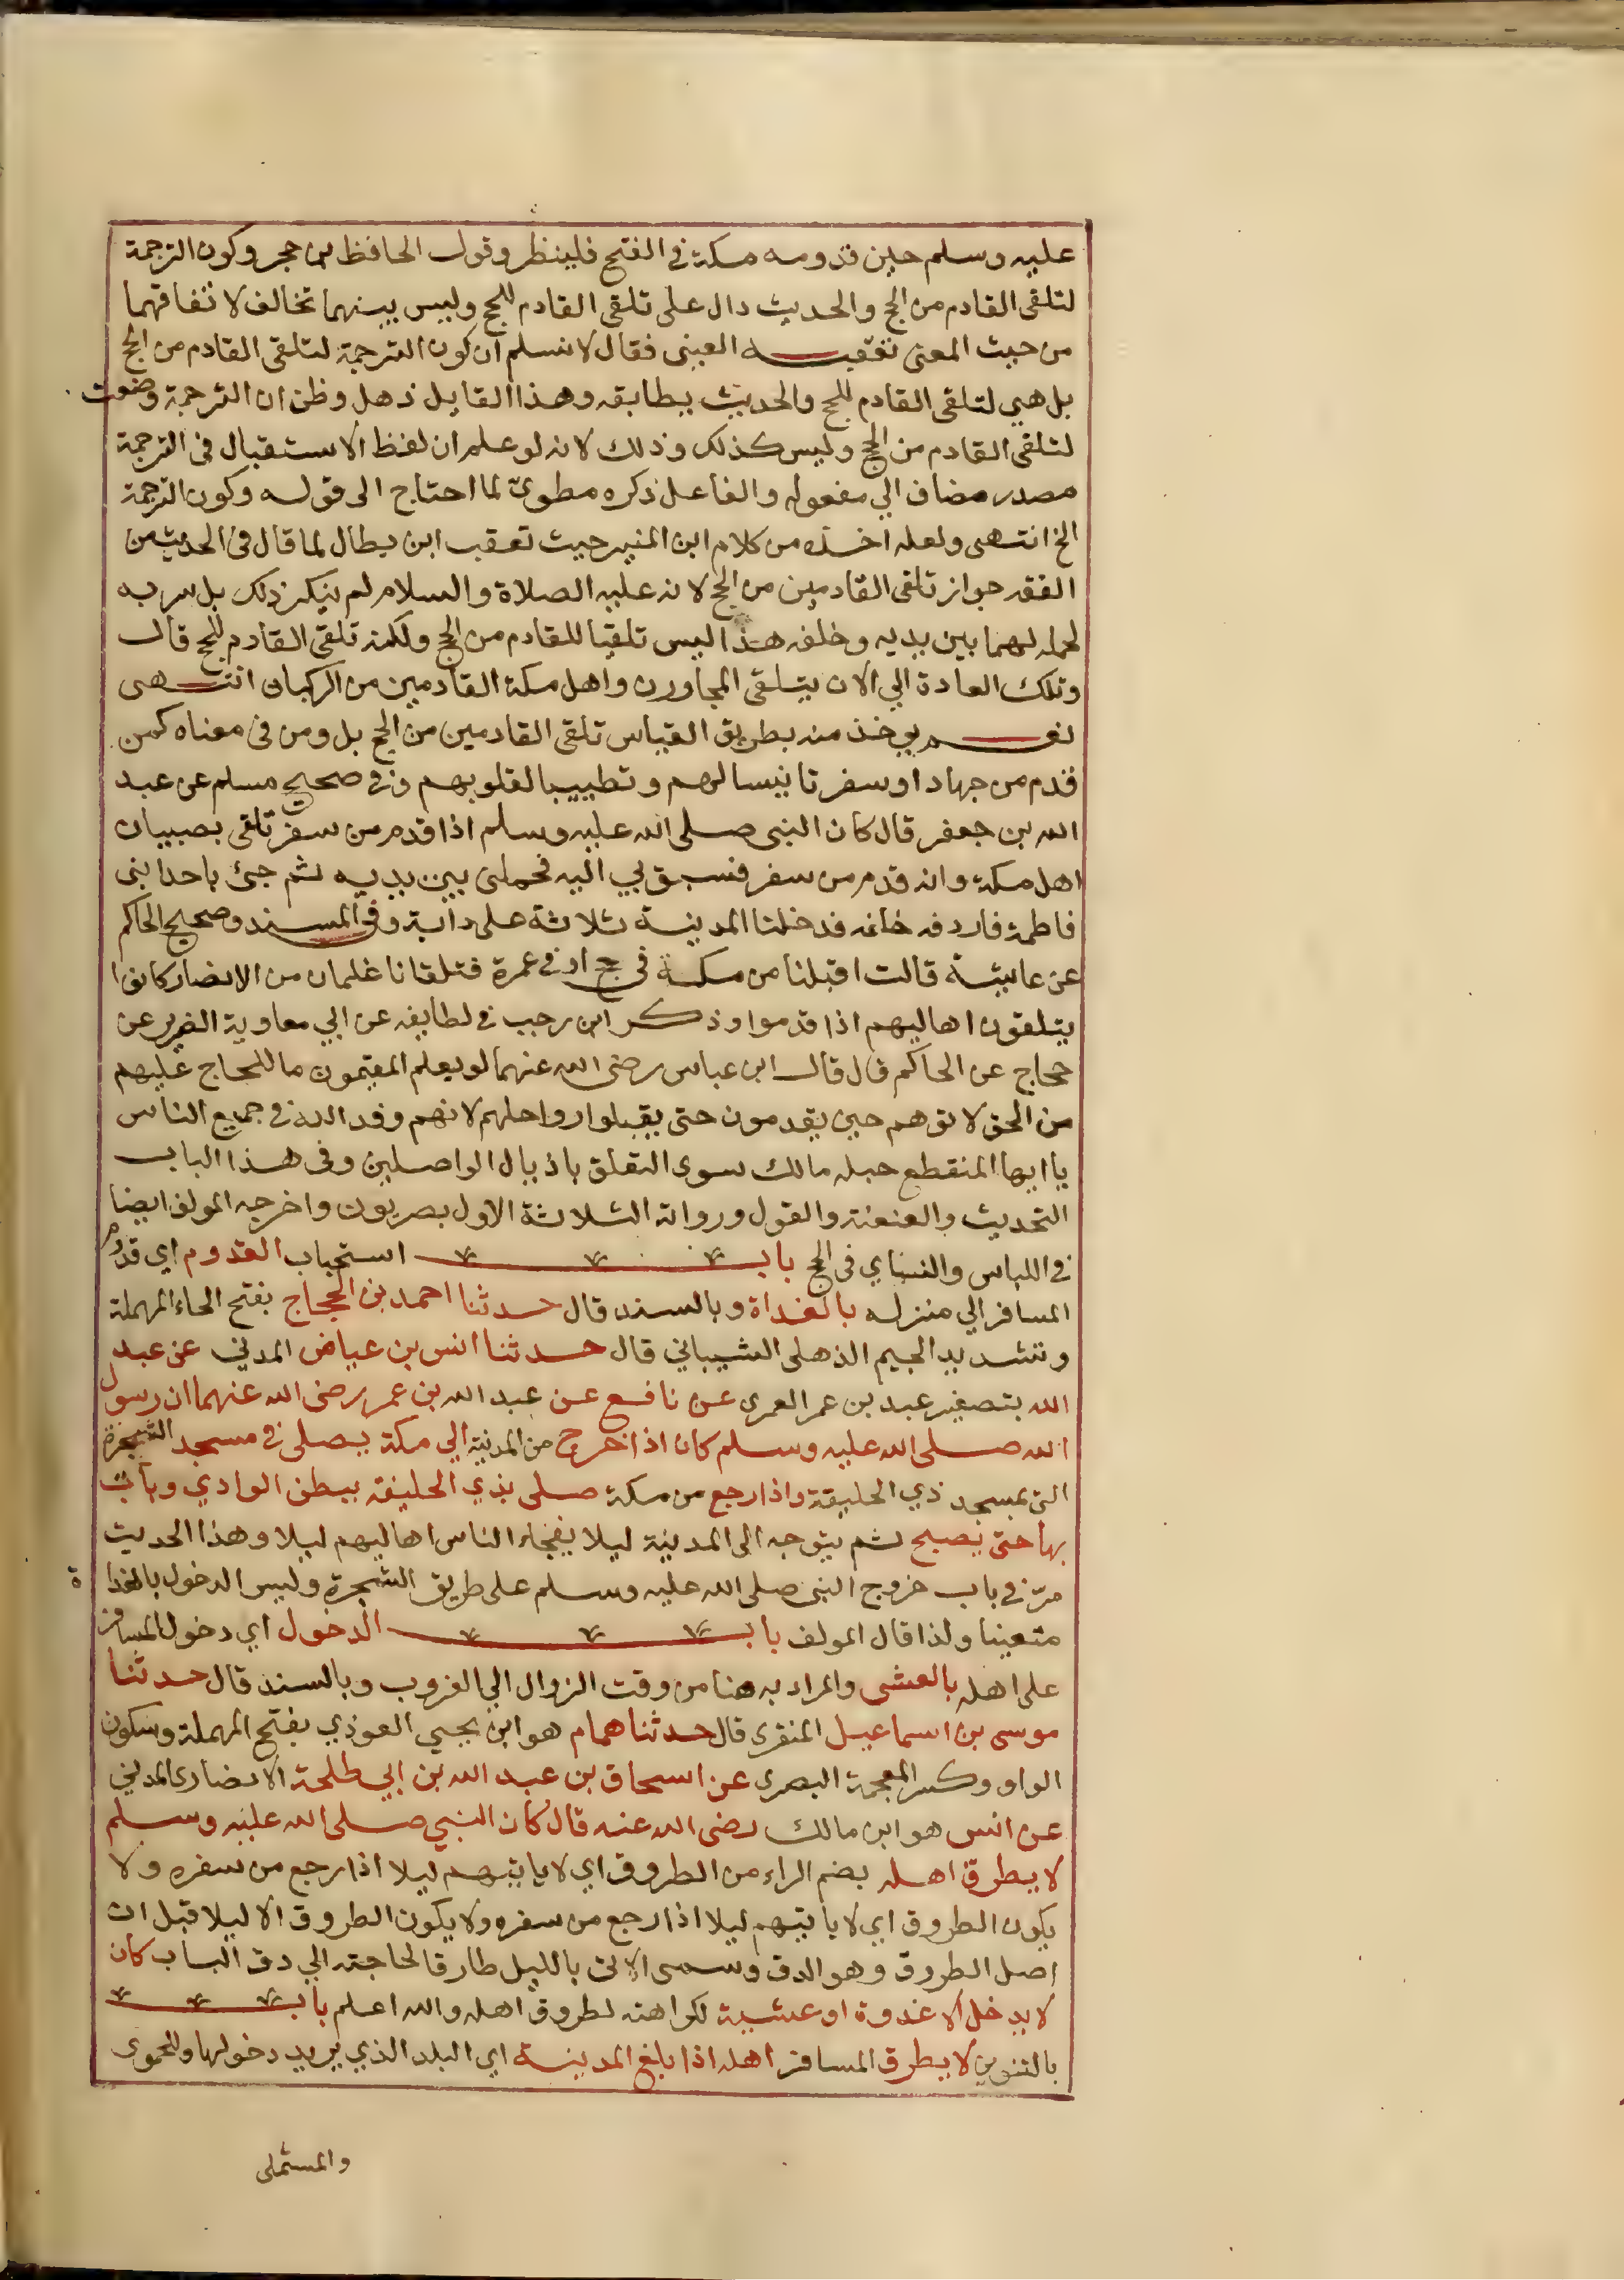 عليه وسلم حين قدومه مكة في الفتح فلينظر وقول الحافظ بن حجر وكون الترجمة
لتلقى القادم من الحج والحديث دال على تلقى القادم للحج وليس بينهما تخالف لاتفاقهما
من حيث المعنى تعقبه العينى فقال لا نسلم ان كون الترجمة لتلقى القادم من الحج
بل هي لتلقى القادم للحج والحديث يطابقه وهذا القايل ذهل وظن ان الترجمة وضعت
لتلقى القادم من الحج وليس كذلك وذلك لانه لو علم ان لفظ الاستقبال في الترجمة
مصدر مضاف الي مفعوله والفاعل ذكره مطوى لما احتاج الى قوله وكون الترجمة
الخ انتهى ولعله اخذه من كلام ابن المنير حيث تعقب ابن بطال لما قال في الحديث من
الفقه جواز تلقى القادمين من الحج لانه عليه الصلاة والسلام لم ينكر ذلك بل سر به
لحمله لهما بين يديه وخلفه هذا ليس تلقيا للقادم من الحج ولكنه تلقى القادم للحج قال
وتلك العادة الي الان يتلقى المجاورن واهل مكة القادمين من الركبان انتهى
نعم يوخذ منه بطريق القياس تلقى القادمين من الحج بل ومن في معناه كمن
قدم من جهاد او سفر تانيسا لهم وتطييبا لقلوبهم وفي صحيح مسلم عن عبد
الله بن جعفر قال كان النبى صلى الله عليه وسلم اذا قدم من سفر تلقى بصبيان
اهل مكة وانه قدم من سفر فسبق بي اليه فحملنى بين يديه ثم جئ باحد ابنى
فاطمة فاردفه خلفه فدخلنا المدينة ثلاثة على دابة وفي المسند وصحيح الحاكم
عن عايشة قالت اقبلنا من مكة في حج او في عمرة فتلقانا غلمان من الانصار كانوا
يتلقون اهاليهم اذا قدموا وذكر ابن رجب في لطايفه عن ابي معاوية الضرير عن
حجاج عن الحاكم قال قال ابن عباس رضى الله عنهما لو يعلم المقيمون ما للحاج عليهم
من الحق لاتوهم حين يقدمون حتى يقبلوا رواحلهم لانهم وفد الله في جميع الناس
يا ايها المنقطع حبله مالك سوى التعلق باذيال الواصلين وفي هذا الباب
التحديث والعنعنة والقول ورواته الثلاثة الاول بصريون واخرجه المولف ايضا
في اللباس والنساي في الحج باب استحباب القدوم اي قدوم
المسافر الي منزله بالغداة وبالسند قال حدثنا احمد بن الحجاج بفتح الحاء المهملة
وتشديد الجيم الذهلى الشيباني قال حدثنا انس بن عياض المدني عن عبيد
الله بتصغير عبد بن عمر العمرى عن نافع عن عبد الله بن عمر رضى الله عنهما ان رسول
الله صلى الله عليه وسلم كان اذا خرج من المدينة الي مكة يصلى في مسجد الشجرة
التى بمسجد ذي الحليفة واذا رجع من مكة صلى بذي الحليفة ببطن الوادي وبات
بها حتى يصبح ثم يتوجه الى المدينة ليلا يفجاء الناس اهاليهم ليلا وهذا الحديث
مرّ في باب خروج النبى صلى الله عليه وسلم على طريق الشجرة وليس الدخول بالغداة
متعينا ولذا قال المولف باب الدخول اي دخول المسافر
على اهله بالعشى والمراد به هنا من وقت الزوال الي الغروب وبالسند قال حدثنا
موسى بن اسماعيل المنقرى قال حدثنا همام هو ابن يحيي العوذي بفتح المهملة وسكون
الواو وكسر المعجمة البصرى عن اسحاق بن عبد الله بن ابي طلحة الانصارى المدني
عن انس هو ابن مالك رضى الله عنه قال كان النبي صلى الله عليه وسلم
لا يطرق اهله بضم الراء من الطروق اي لا ياتيهم ليلا اذا رجع من سفره ولا
يكون الطروق اي لا ياتيهم ليلا اذا رجع من سفره ولا يكون الطروق الا ليلا قيل ان
اصل الطروق وهو الدق وسمى الاتى بالليل طارقا لحاجته الي دق الباب كان
لا يدخل الا غدوة او عشية لكراهته لطروق اهله والله اعلم باب
بالتنوين لا يطرق المسافر اهله اذا بلغ المدينة اي البلد الذي يريد دخولها وللحموى
والمستملى